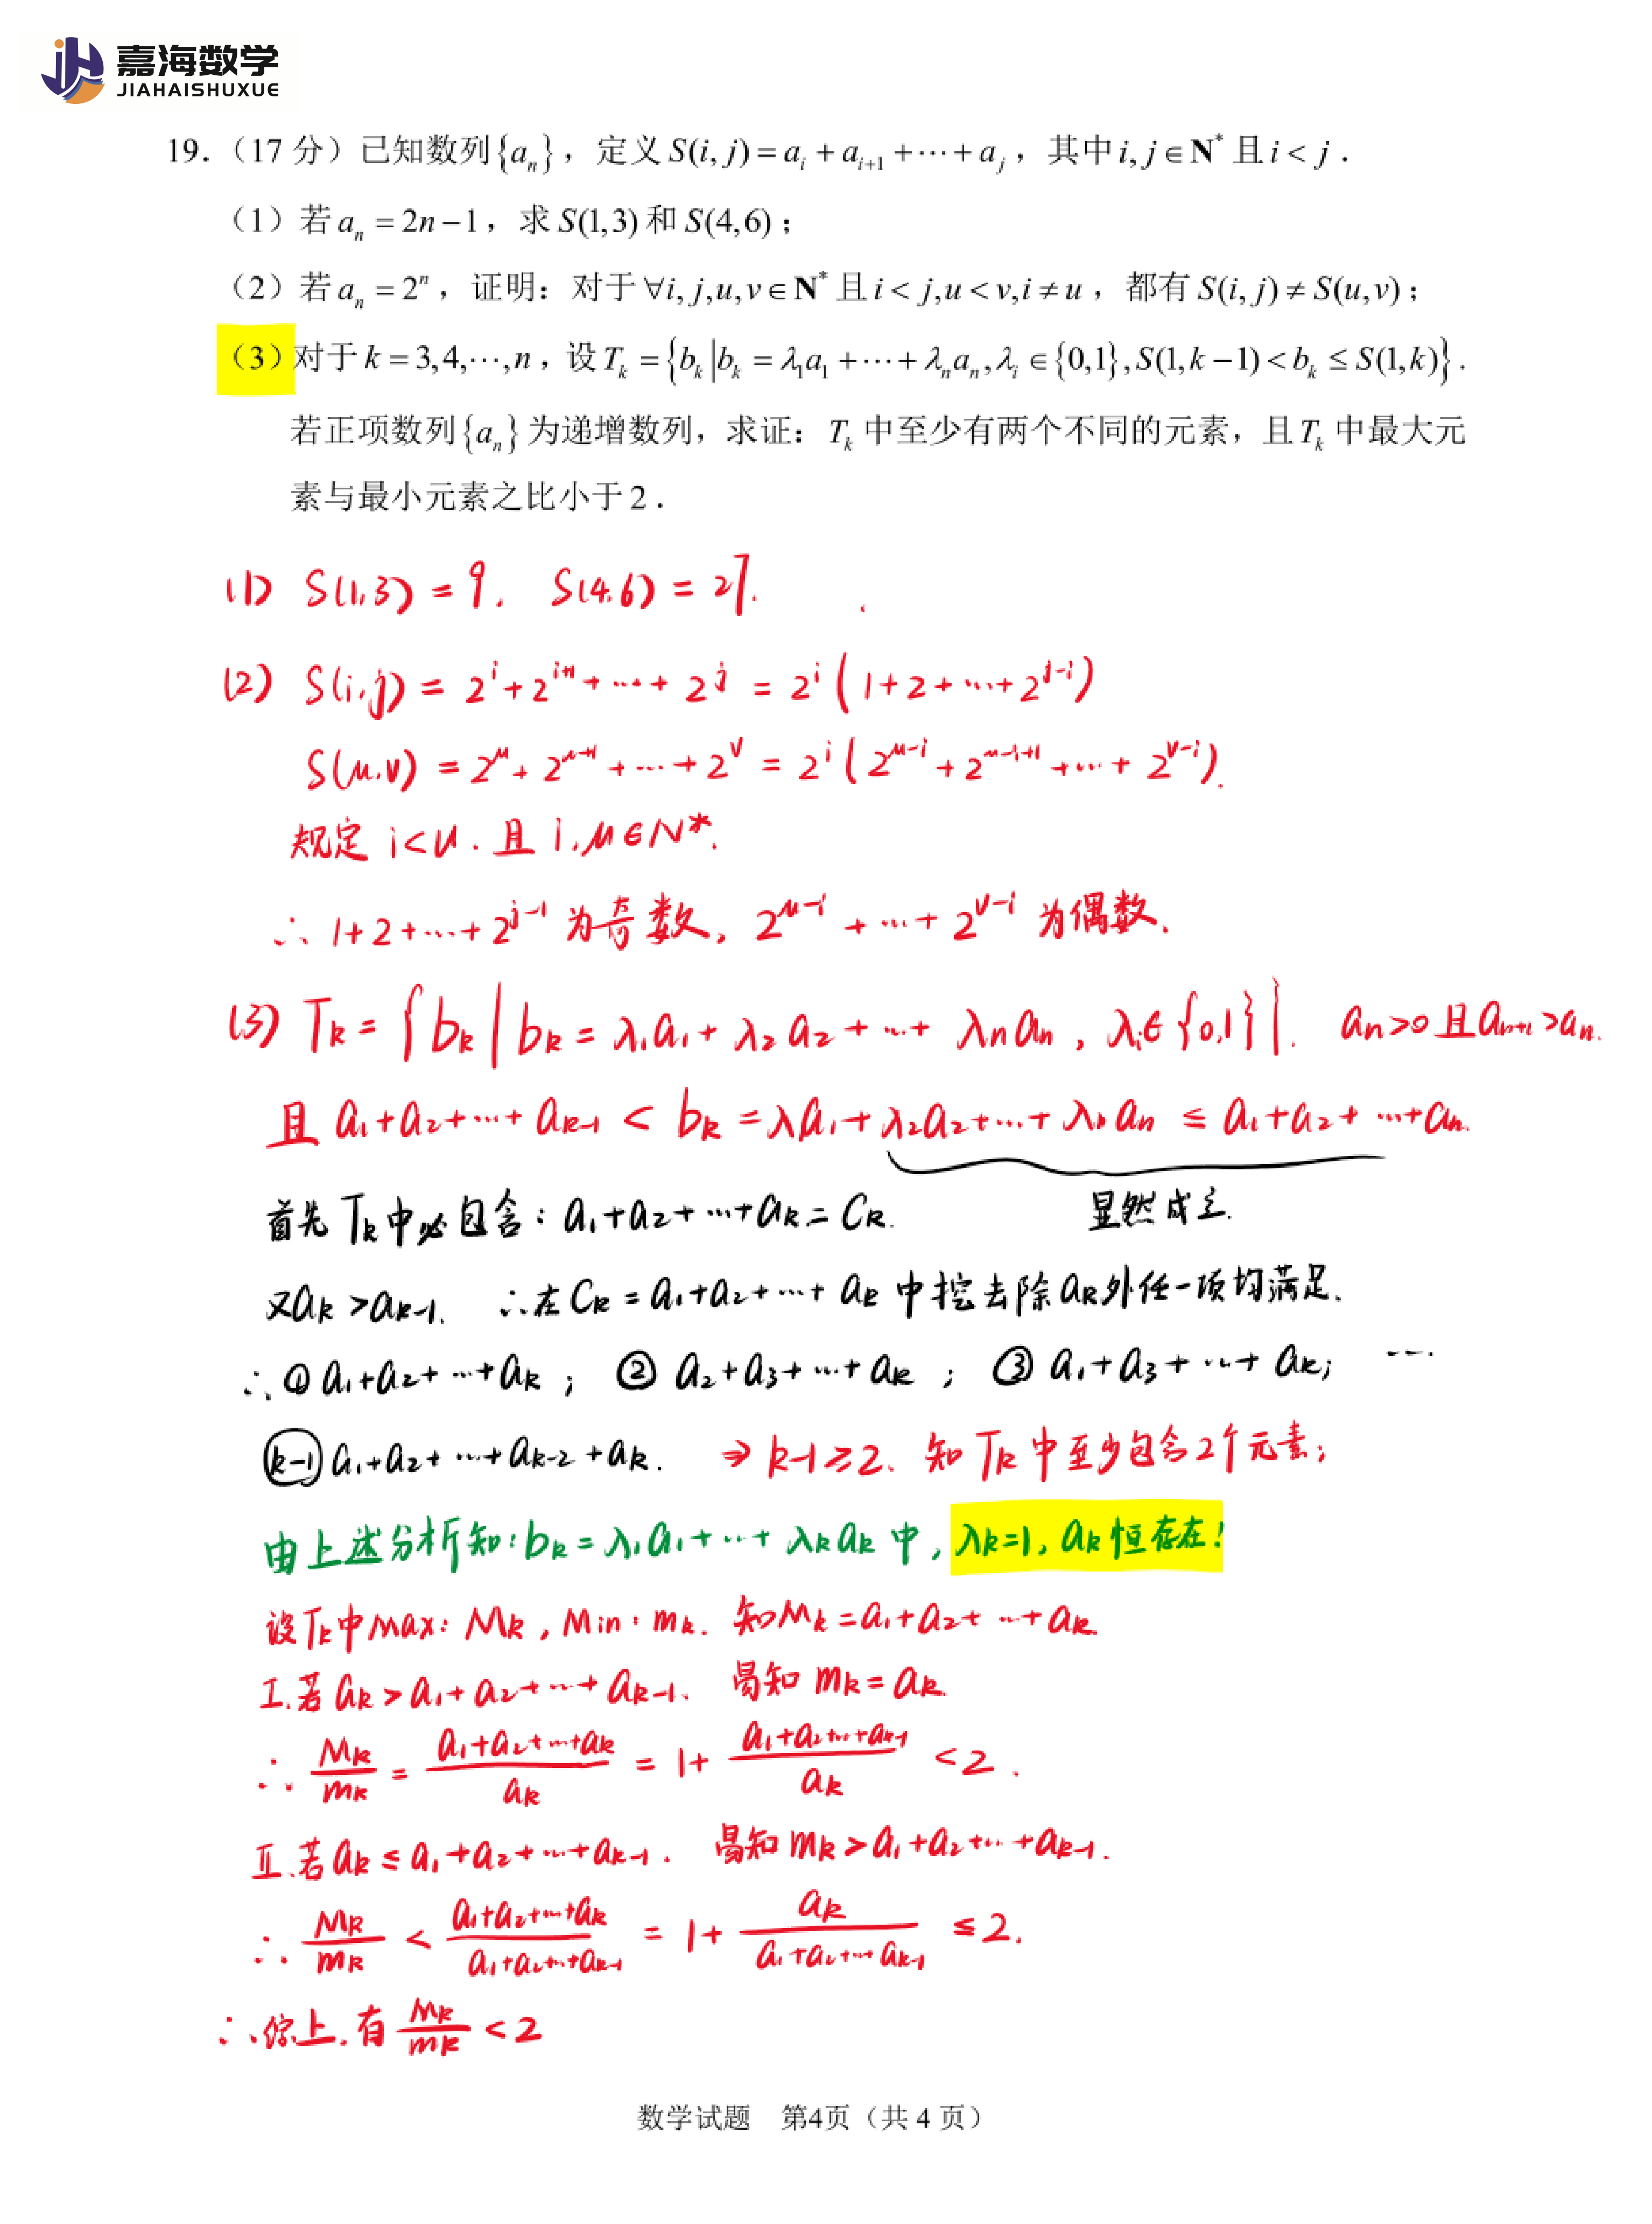 嘉海数学
JIAHAISHUXUE
19.（17 分）已知数列{aₙ}，定义 S(i, j) = aᵢ + aᵢ₊₁ + ⋯ + aⱼ，其中 i, j ∈ N* 且 i < j．
（1）若 aₙ = 2n − 1，求 S(1,3) 和 S(4,6)；
（2）若 aₙ = 2ⁿ，证明：对于 ∀i, j,u,v ∈ N* 且 i < j,u < v,i ≠ u，都有 S(i, j) ≠ S(u,v)；
（3）对于 k = 3,4,⋯,n，设 Tₖ = {bₖ | bₖ = λ₁a₁ + ⋯ + λₙaₙ, λᵢ ∈ {0,1}, S(1,k − 1) < bₖ ≤ S(1,k)}．
若正项数列{aₙ}为递增数列，求证：Tₖ 中至少有两个不同的元素，且 Tₖ 中最大元
素与最小元素之比小于 2．
(1) S(1,3) = 9. S(4.6) = 27.
(2) S(i,j) = 2^i + 2^{i+1} + ⋯ + 2^j = 2^i (1+2+⋯+2^{j-i})
S(u.v) = 2^u + 2^{u+1} + ⋯ + 2^v = 2^i (2^{u-i} + 2^{u-i+1} + ⋯ + 2^{v-i}).
规定 i<u . 且 i,u∈N*.
∴ 1+2+⋯+2^{j-i} 为奇数, 2^{u-i} + ⋯ + 2^{v-i} 为偶数.
(3) Tₖ = {bₖ | bₖ = λ₁a₁ + λ₂a₂ + ⋯ + λₙaₙ , λᵢ∈{0,1}}. aₙ>0 且 aₙ₊₁>aₙ.
且 a₁+a₂+⋯+aₖ₋₁ < bₖ = λa₁+λ₂a₂+⋯+λₙaₙ ≤ a₁+a₂+⋯+aₙ.
首先 Tₖ中必包含: a₁+a₂+⋯+aₖ = Cₖ. 显然成立.
又aₖ >aₖ₋₁. ∴在 Cₖ = a₁+a₂+⋯+ aₖ 中挖去除aₖ外任一项均满足.
∴ ① a₁+a₂+⋯+aₖ ; ② a₂+a₃+⋯+aₖ ; ③ a₁+a₃+⋯+aₖ; ⋯
(k-1) a₁+a₂+⋯+aₖ₋₂+aₖ. ⇒ k-1≥2. 知 Tₖ 中至少包含2个元素;
由上述分析知: bₖ = λ₁a₁+⋯+λₖaₖ 中, λₖ=1, aₖ恒存在!
设Tₖ中max: Mₖ , Min: mₖ. 知Mₖ = a₁+a₂+⋯+aₖ
I.若 aₖ > a₁+a₂+⋯+aₖ₋₁. 易知 mₖ = aₖ.
∴ Mₖ/mₖ = (a₁+a₂+⋯+aₖ)/aₖ = 1+ (a₁+a₂+⋯+aₖ₋₁)/aₖ <2 .
II.若 aₖ ≤ a₁+a₂+⋯+aₖ₋₁ . 易知 mₖ > a₁+a₂+⋯+aₖ₋₁.
∴ Mₖ/mₖ < (a₁+a₂+⋯+aₖ)/(a₁+a₂+⋯+aₖ₋₁) = 1+ aₖ/(a₁+a₂+⋯aₖ₋₁) ≤2.
∴综上.有 Mₖ/mₖ <2
数学试题 第4页（共 4 页）